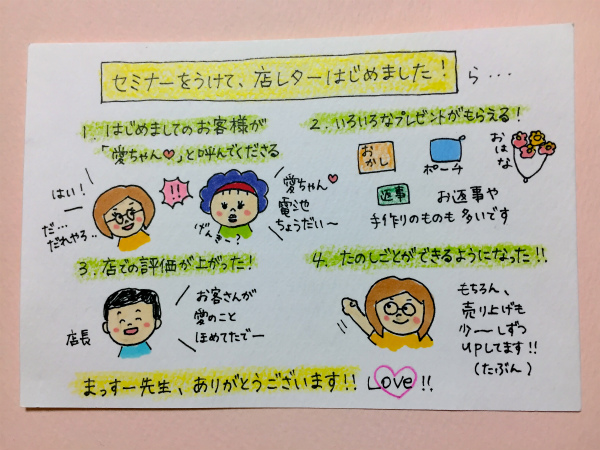 セミナーをうけて、店レターはじめました! ら…
1. はじめましてのお客様が
「愛ちゃん♡」と呼んでくださる
はい!
だ…
だれやろ..
!!
げんき〜?
愛ちゃん♡
電池
ちょうだい〜
2. いろいろなプレゼントがもらえる!
おかし
ポーチ
おはな
返事
お返事や
手作りのものも 多いです
3. 店での評価が上がった!
店長
お客さんが
愛のこと
ほめてたでー
4. たのしごとができるようになった!!
もちろん、
売り上げも
少〜しずつ
UPしてます!!
(たぶん)
まっすー先生、ありがとうございます!! Love!!